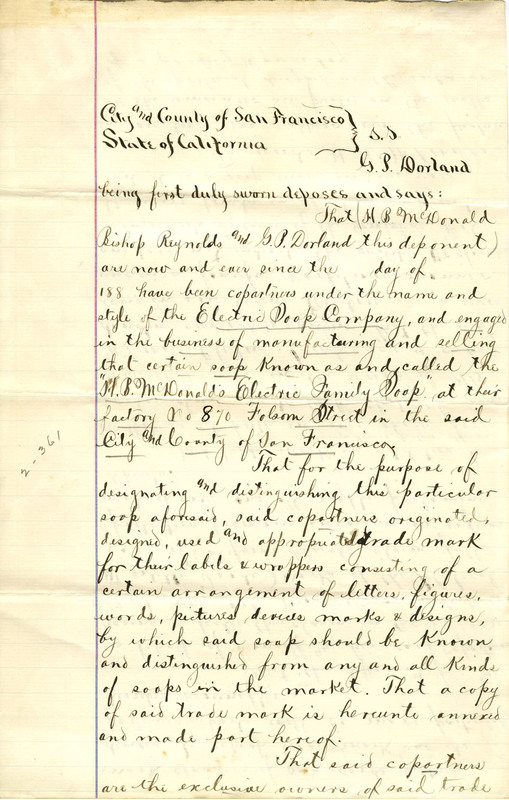 City and County of San Francisco } S.S
State of California
G.P. Dorland
being first duly sworn deposes and says:
That (H.B. McDonald
Bishop Reynolds and G.P. Dorland this deponent)
are now and ever since the day of
188 have been copartners under the name and
style of the Electric Soap Company, and engaged
in the business of manufacturing and selling
that certain soap known as and called the
"H.B. McDonald's Electric Family Soap" at their
factory No 870 Folsom Street in the said
City and County of San Francisco.
That for the purpose of
designating and distinguishing this particular
soap aforesaid, said copartners originated,
designed, used and appropriated trade mark
for their labels & wrappers consisting of a
certain arrangement of letters, figures,
words, pictures, devices marks & designs,
by which said soap should be known
and distinguished from any and all kinds
of soaps in the market. That a copy
of said trade mark is hereunto annexed
and made part hereof.
That said copartners
are the exclusive owners of said trade
2-361